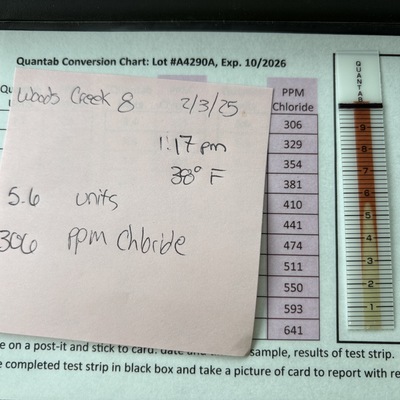 Quantab Conversion Chart: Lot #A4290A, Exp. 10/2026
Woods Creek 8 2/3/25
1:17 pm
38° F
5.6 units
306 ppm Chloride
PPM
Chloride
306
329
354
381
410
441
474
511
550
593
641
QUANTAB
9
8
7
6
5
4
3
2
1
e on a post-it and stick to card: date sample, results of test strip.
e completed test strip in black box and take a picture of card to report with re